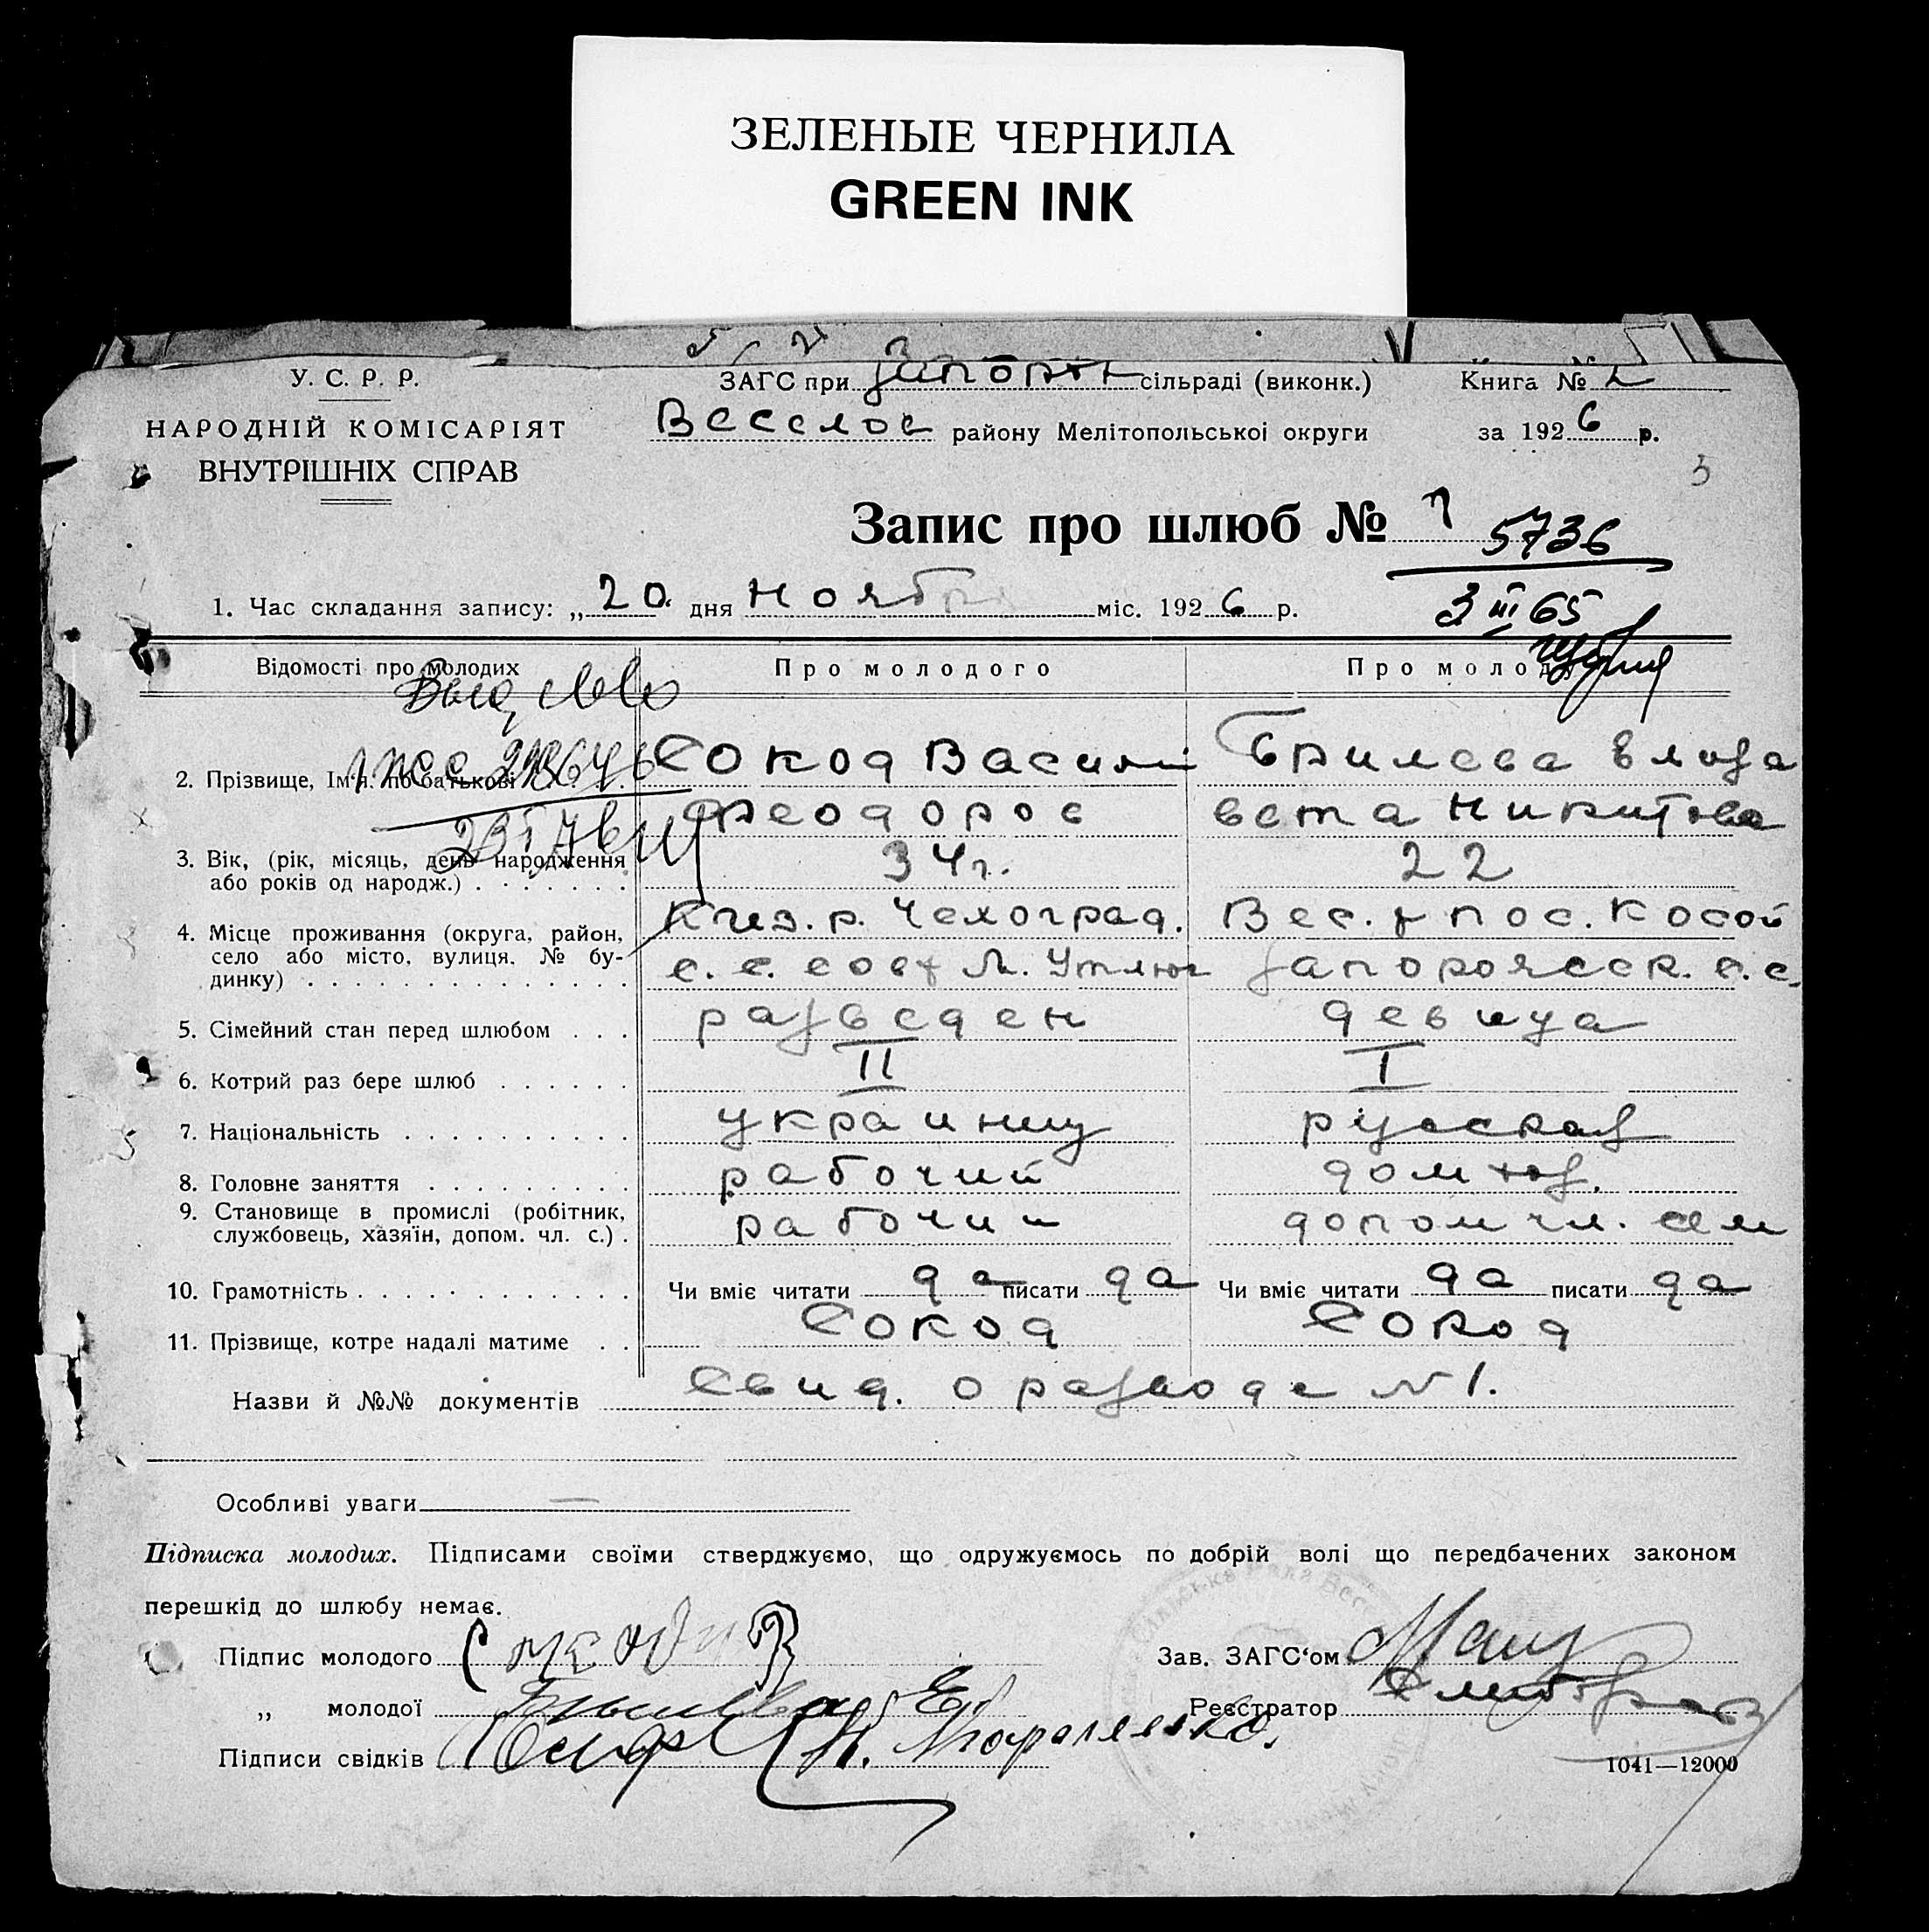 ЗЕЛЕНЫЕ ЧЕРНИЛА
GREEN INK
У. С. Р. Р.
НАРОДНІЙ КОМІСАРІЯТ
ВНУТРІШНІХ СПРАВ
ЗАГС при Запорож сільраді (виконк.)
Веселов району Мелітопольської округи
Книга №
за 1926 р.
Запис про шлюб № 7
5736
3 III 65
1. Час складання запису: „20“ дня ноября міс. 1926 р.
Відомості про молодих Про молодого Про молоду
2. Прізвище, Ім'я, по батькові Сокод Васили Брилева Елиза
Феодоров вета Никитова
23 I 76
3. Вік, (рік, місяць, день народження 34 г. 22
або років од народж.)
4. Місце проживання (округа, район, Киз. р. Чехоград. Вес. р пос. Косой
село або місто, вулиця, № бу- с. с. совх М. Утлюг Запорожск. с. с.
динку)
5. Сімейний стан перед шлюбом разведен девица
6. Котрий раз бере шлюб II I
7. Національність украинец русская
8. Головне заняття рабочий дом хоз.
9. Становище в промислі (робітник, рабочий допом чл. сем
службовець, хазяїн, допом. чл. с.)
10. Грамотність Чи вміє читати да писати да Чи вміє читати да писати да
11. Прізвище, котре надалі матиме Сокод Сокод
Назви й №№ документів Свид. о разводе № 1.
Особливі уваги —
Підписка молодих. Підписами своїми стверджуємо, що одружуємось по добрій волі що передбачених законом
перешкід до шлюбу немає.
Підпис молодого
Зав. ЗАГС‘ом
„ молодої
Реєстратор
Підписи свідків
1041—12000